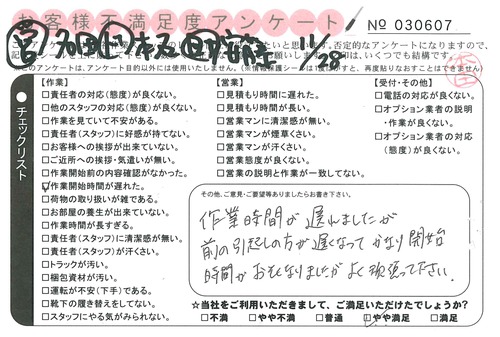 お客様不満足度アンケート
No 030607
11/28
チェックリスト
【作業】
□責任者の対応(態度)が良くない。
□他のスタッフの対応(態度)が良くない。
□作業を見ていて不安がある。
□責任者(スタッフ)に好感が持てない。
□お客様への挨拶が出来ていない。
□ご近所への挨拶・気遣いが無い。
□作業開始前の内容確認がなかった。
☑作業開始時間が遅れた。
□荷物の取り扱いが雑である。
□お部屋の養生が出来ていない。
□作業時間が長すぎる。
□責任者(スタッフ)に清潔感が無い。
□責任者(スタッフ)が汗くさい。
□トラックが汚い。
□梱包資材が汚い。
□運転が不安(下手)である。
□靴下の履き替えをしてない。
□スタッフにやる気がみられない。
【営業】
□見積もり時間に遅れた。
□見積もり時間が長い。
□営業マンに清潔感が無い。
□営業マンが煙草くさい。
□営業マンが汗くさい。
□営業態度が良くない。
□営業の説明と作業が一致してない。
【受付・その他】
□電話の対応が良くない。
□オプション業者の説明
・作業が良くない。
□オプション業者の対応
(態度)が良くない。
その他、ご意見・ご要望等ありましたらお書き下さい。
作業時間が遅れましたが
前の引越しの方が遅くなって かなり開始
時間がおそくなりましたがよく頑張って下さい.
☆当社をご利用いただきまして、ご満足いただけたでしょうか?
□不満 □やや不満 □普通 ☑やや満足 □満足